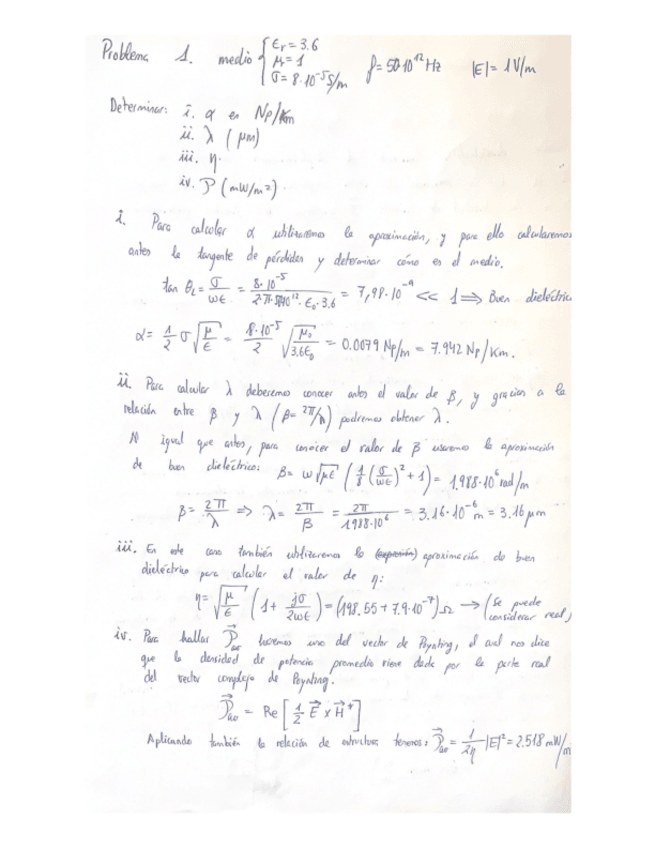 Problema 1. medio { εr = 3.6
μr = 1
σ = 8·10⁻⁵ S/m
f = 50·10¹² Hz |E| = 1 V/m
Determinar: i. α en Np/Km
ii. λ (μm)
iii. η.
iv. P (mW/m²)
i. Para calcular α utilizaremos la aproximación, y para ello calcularemos
antes la tangente de pérdidas y determinar cómo es el medio.
tan θL = σ/ωε = 8·10⁻⁵ / 2·π·50·10¹²·ε₀·3.6 = 7,98·10⁻⁹ << 1 ⟹ Buen dieléctrico
α = 1/2 σ √(μ/ε) = 8·10⁻⁵/2 √(μ₀/3.6ε₀) = 0.0079 Np/m = 7.942 Np/Km.
ii. Para calcular λ deberemos conocer antes el valor de β, y gracias a la
relación entre β y λ (β = 2π/λ) podremos obtener λ.
Al igual que antes, para conocer el valor de β usaremos la aproximación
de buen dieléctrico: β = ω√με (1/8 (σ/ωε)² + 1) = 1.988·10⁶ rad/m
β = 2π/λ ⟹ λ = 2π/β = 2π/1988·10⁶ = 3.16·10⁻⁶ m = 3.16 μm
iii. En este caso también utilizaremos la (expresión) aproximación de buen
dieléctrico para calcular el valor de η:
η = √(μ/ε) (1 + jσ/2ωε) = (198.55 + 7.9·10⁻⁷) Ω → (Se puede
considerar real)
iv. Para hallar P⃗av haremos uso del vector de Poynting, el cual nos dice
que la densidad de potencia promedio viene dada por la parte real
del vector complejo de Poynting.
P⃗av = Re [1/2 E⃗ x H⃗*]
Aplicando también la relación de tenemos: P⃗av = 1/2η |E|² = 2.518 mW/m